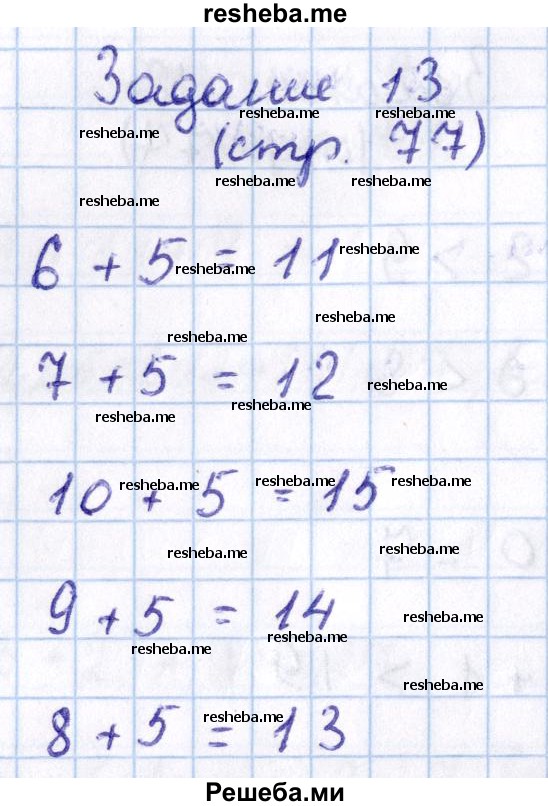 resheba.me
Задание 13
resheba.me resheba.me resheba.me
(стр. 77)
resheba.me resheba.me
resheba.me
6 + 5 = 11
resheba.me resheba.me
resheba.me
resheba.me
7 + 5 = 12
resheba.me
resheba.me resheba.me
10 + 5 = 15
resheba.me resheba.me resheba.me
resheba.me
9 + 5 = 14
resheba.me
resheba.me resheba.me
resheba.me
8 + 5 = 13
resheba.me
Решеба.ми